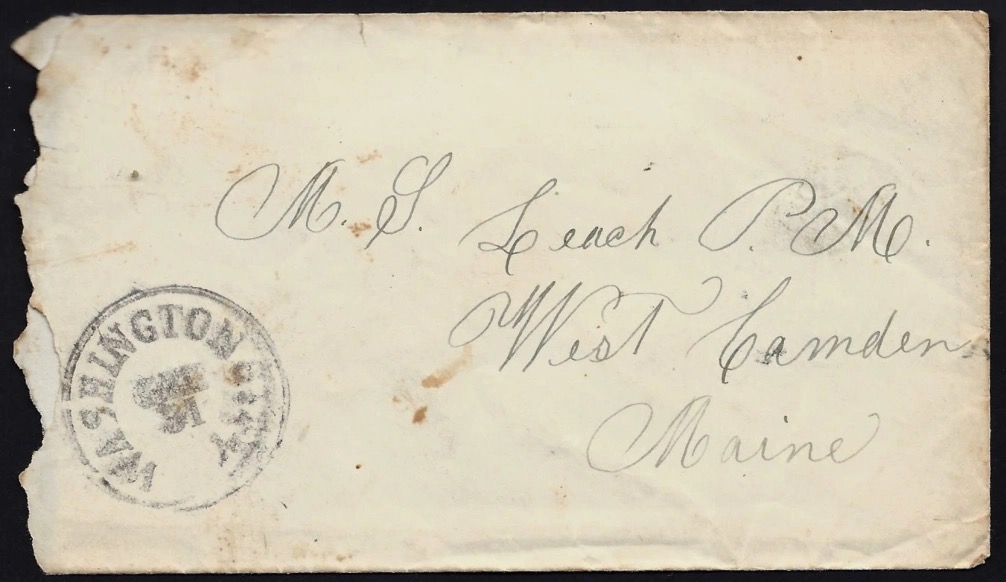 M. S. Leach P. M.
West Camden
Maine
WASHINGTON CITY